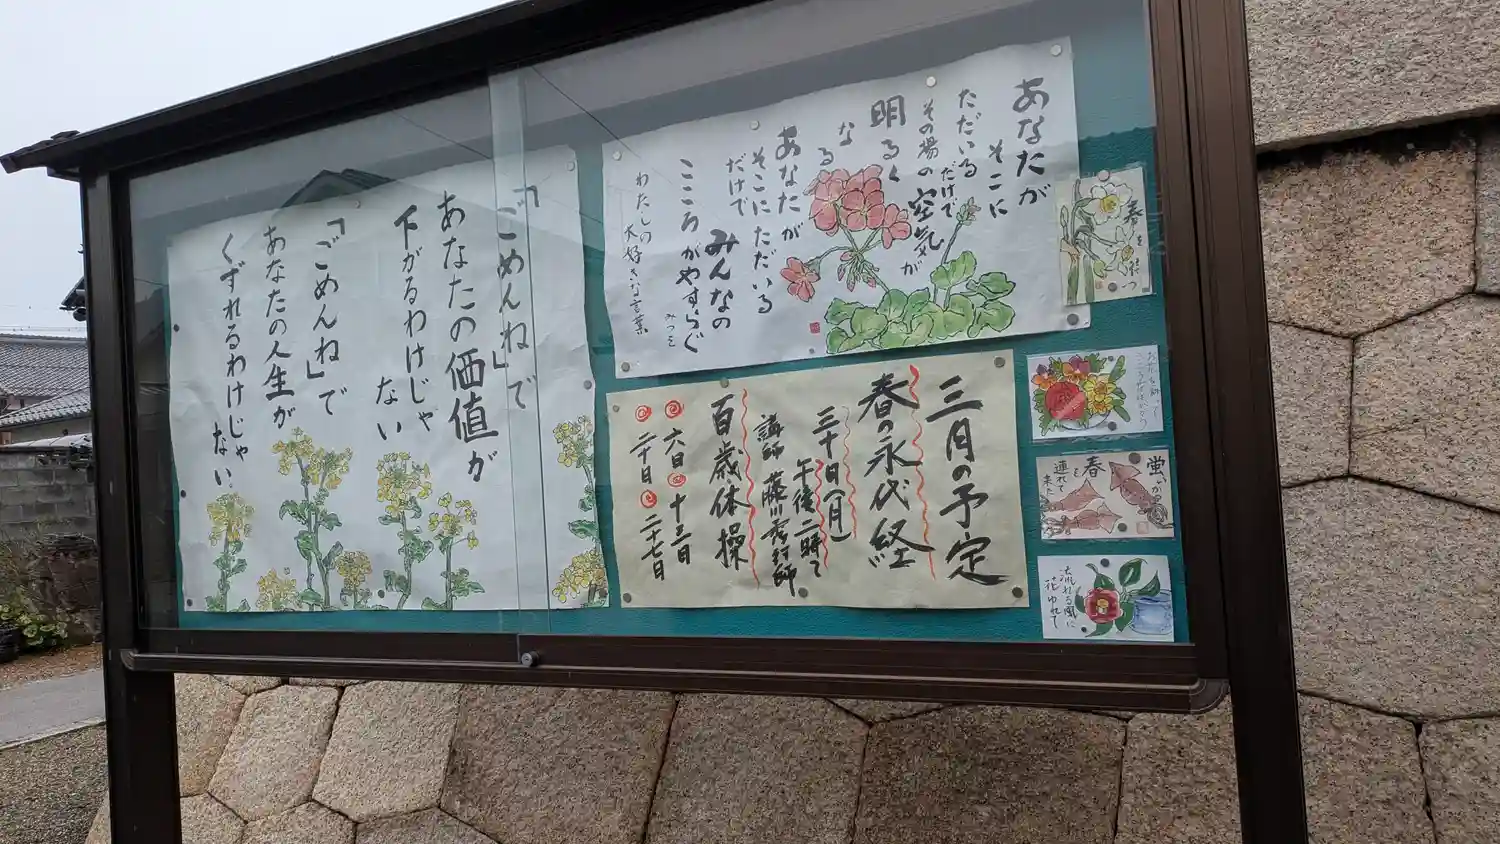 あなたが
そこに
ただいる
だけで
その場の
空気が
明るく
なる
あなたが
そこにただいる
だけで
みんなの
こころがやすらぐ
みつを
わたしの
大好きな言葉
「ごめんね」で
あなたの価値が
下がるわけじゃ
ない
「ごめんね」で
あなたの人生が
くずれるわけじゃ
ない
三月の予定
春の永代経
三十日(月)
午後二時〜
講師 藤川
師
百歳体操
六日 十三日
二十日 二十七日
春を
蛍いか
春を
連れて
来た
流れる風に
花ゆれて